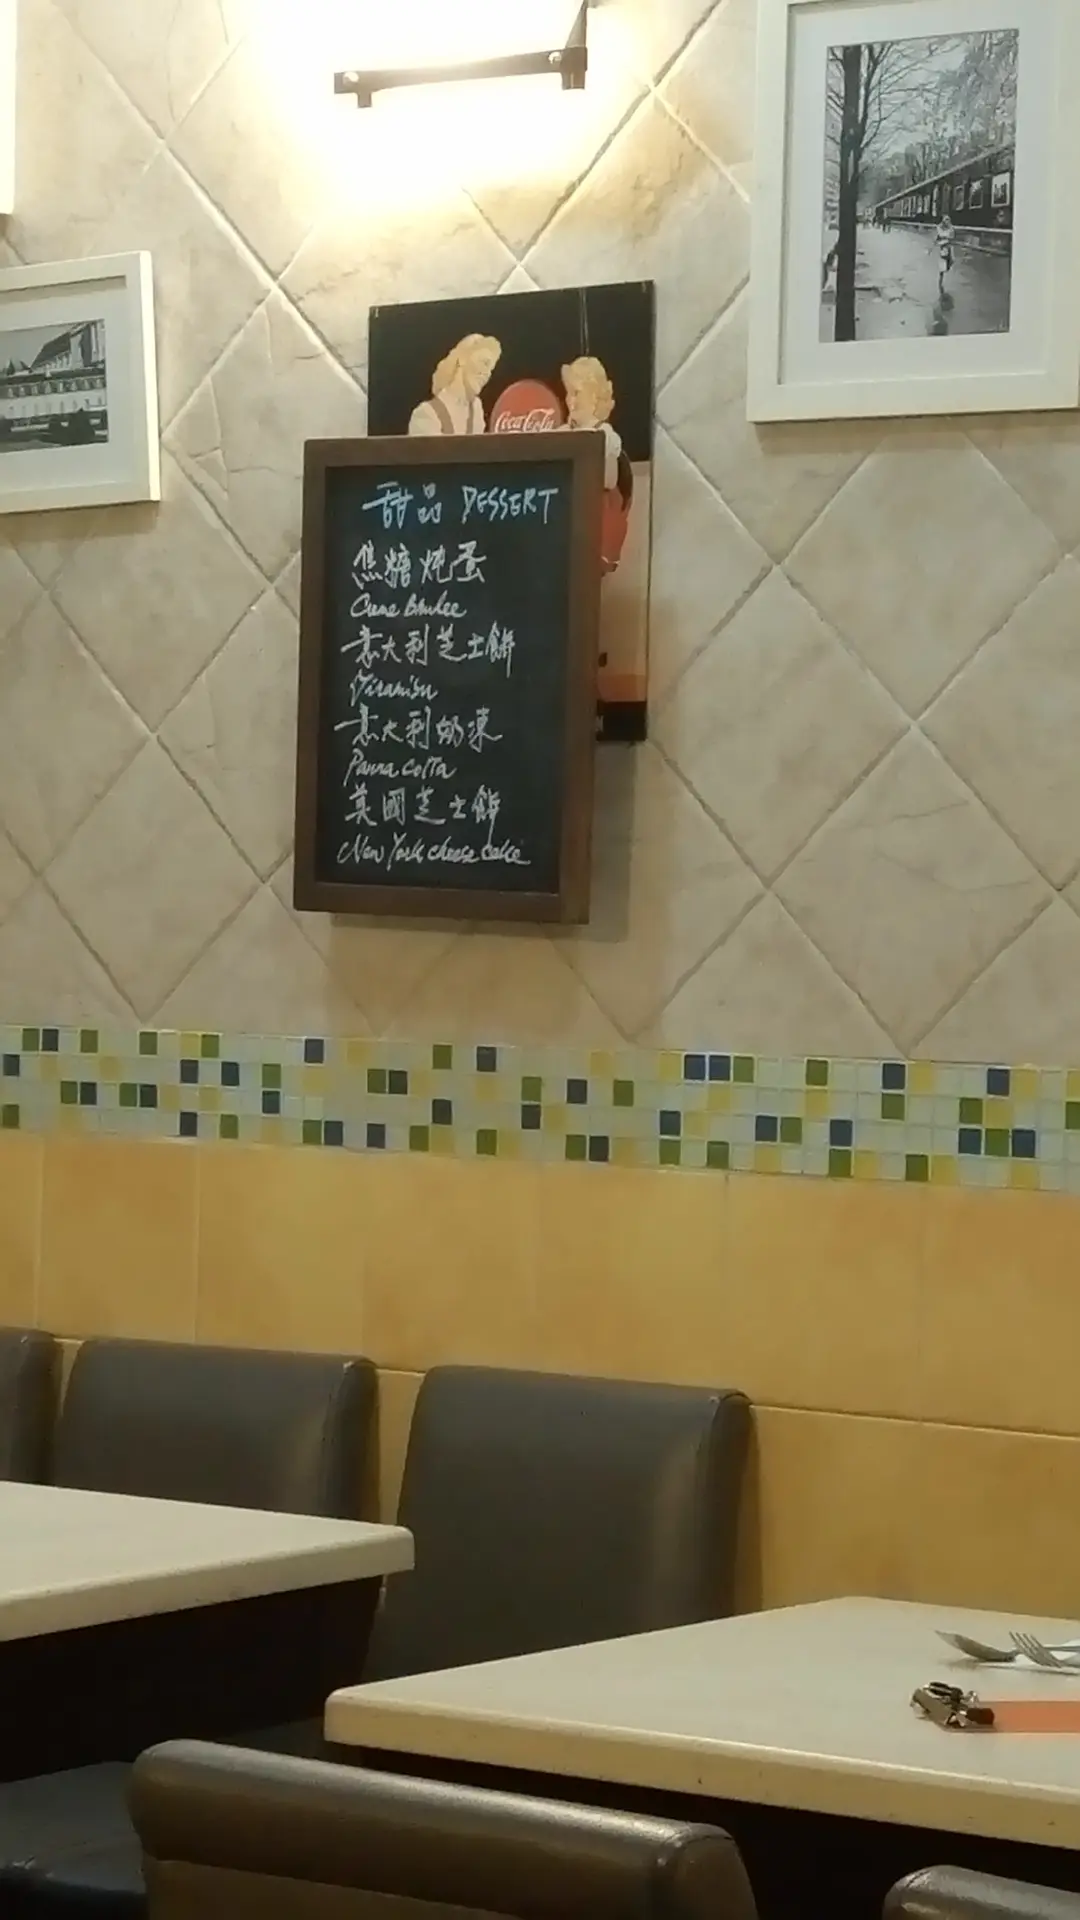 Coca-Cola
甜品 DESSERT
焦糖炖蛋
Creme Brulee
意大利芝士餅
Tiramisu
意大利奶凍
Panna cotta
美國芝士餅
New York cheese cake